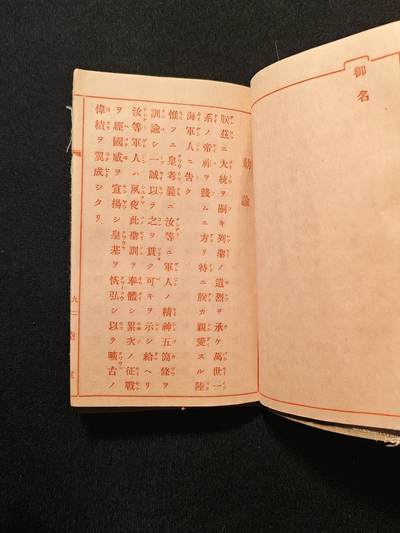 御名
勅諭
朕茲ニ大統ヲ嗣キ列聖ノ遺烈ヲ承ケ萬世一
系ノ帝祚ヲ踐ムニ方リ特ニ朕カ親愛スル陸
海軍人ニ告ク
惟フニ皇考曩ニ汝等ニ軍人ノ精神五箇條ヲ
訓諭シ一誠以テ之ヲ貫ク可キヲ示シ給ヘリ
汝等軍人ハ夙夜此聖訓ヲ奉體シ累次ノ征戰
ヲ經國威ヲ宣揚シ皇基ヲ恢弘シ以テ曠古ノ
偉績ヲ翼成シタリ